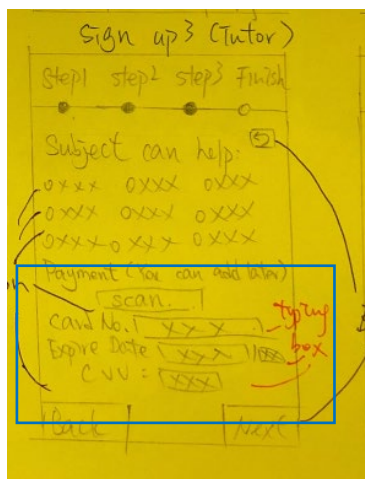 Sign up 3 (Tutor)
Step1 step2 step3 Finish
Subject can help:
oxxx oxxx oxxx
oxxx oxxx oxxx
oxxx oxxx oxxx
Payment (You can add later)
scan.
Card No. xxx typing
Expire Date xxx box
CVV = xxx
Back Next